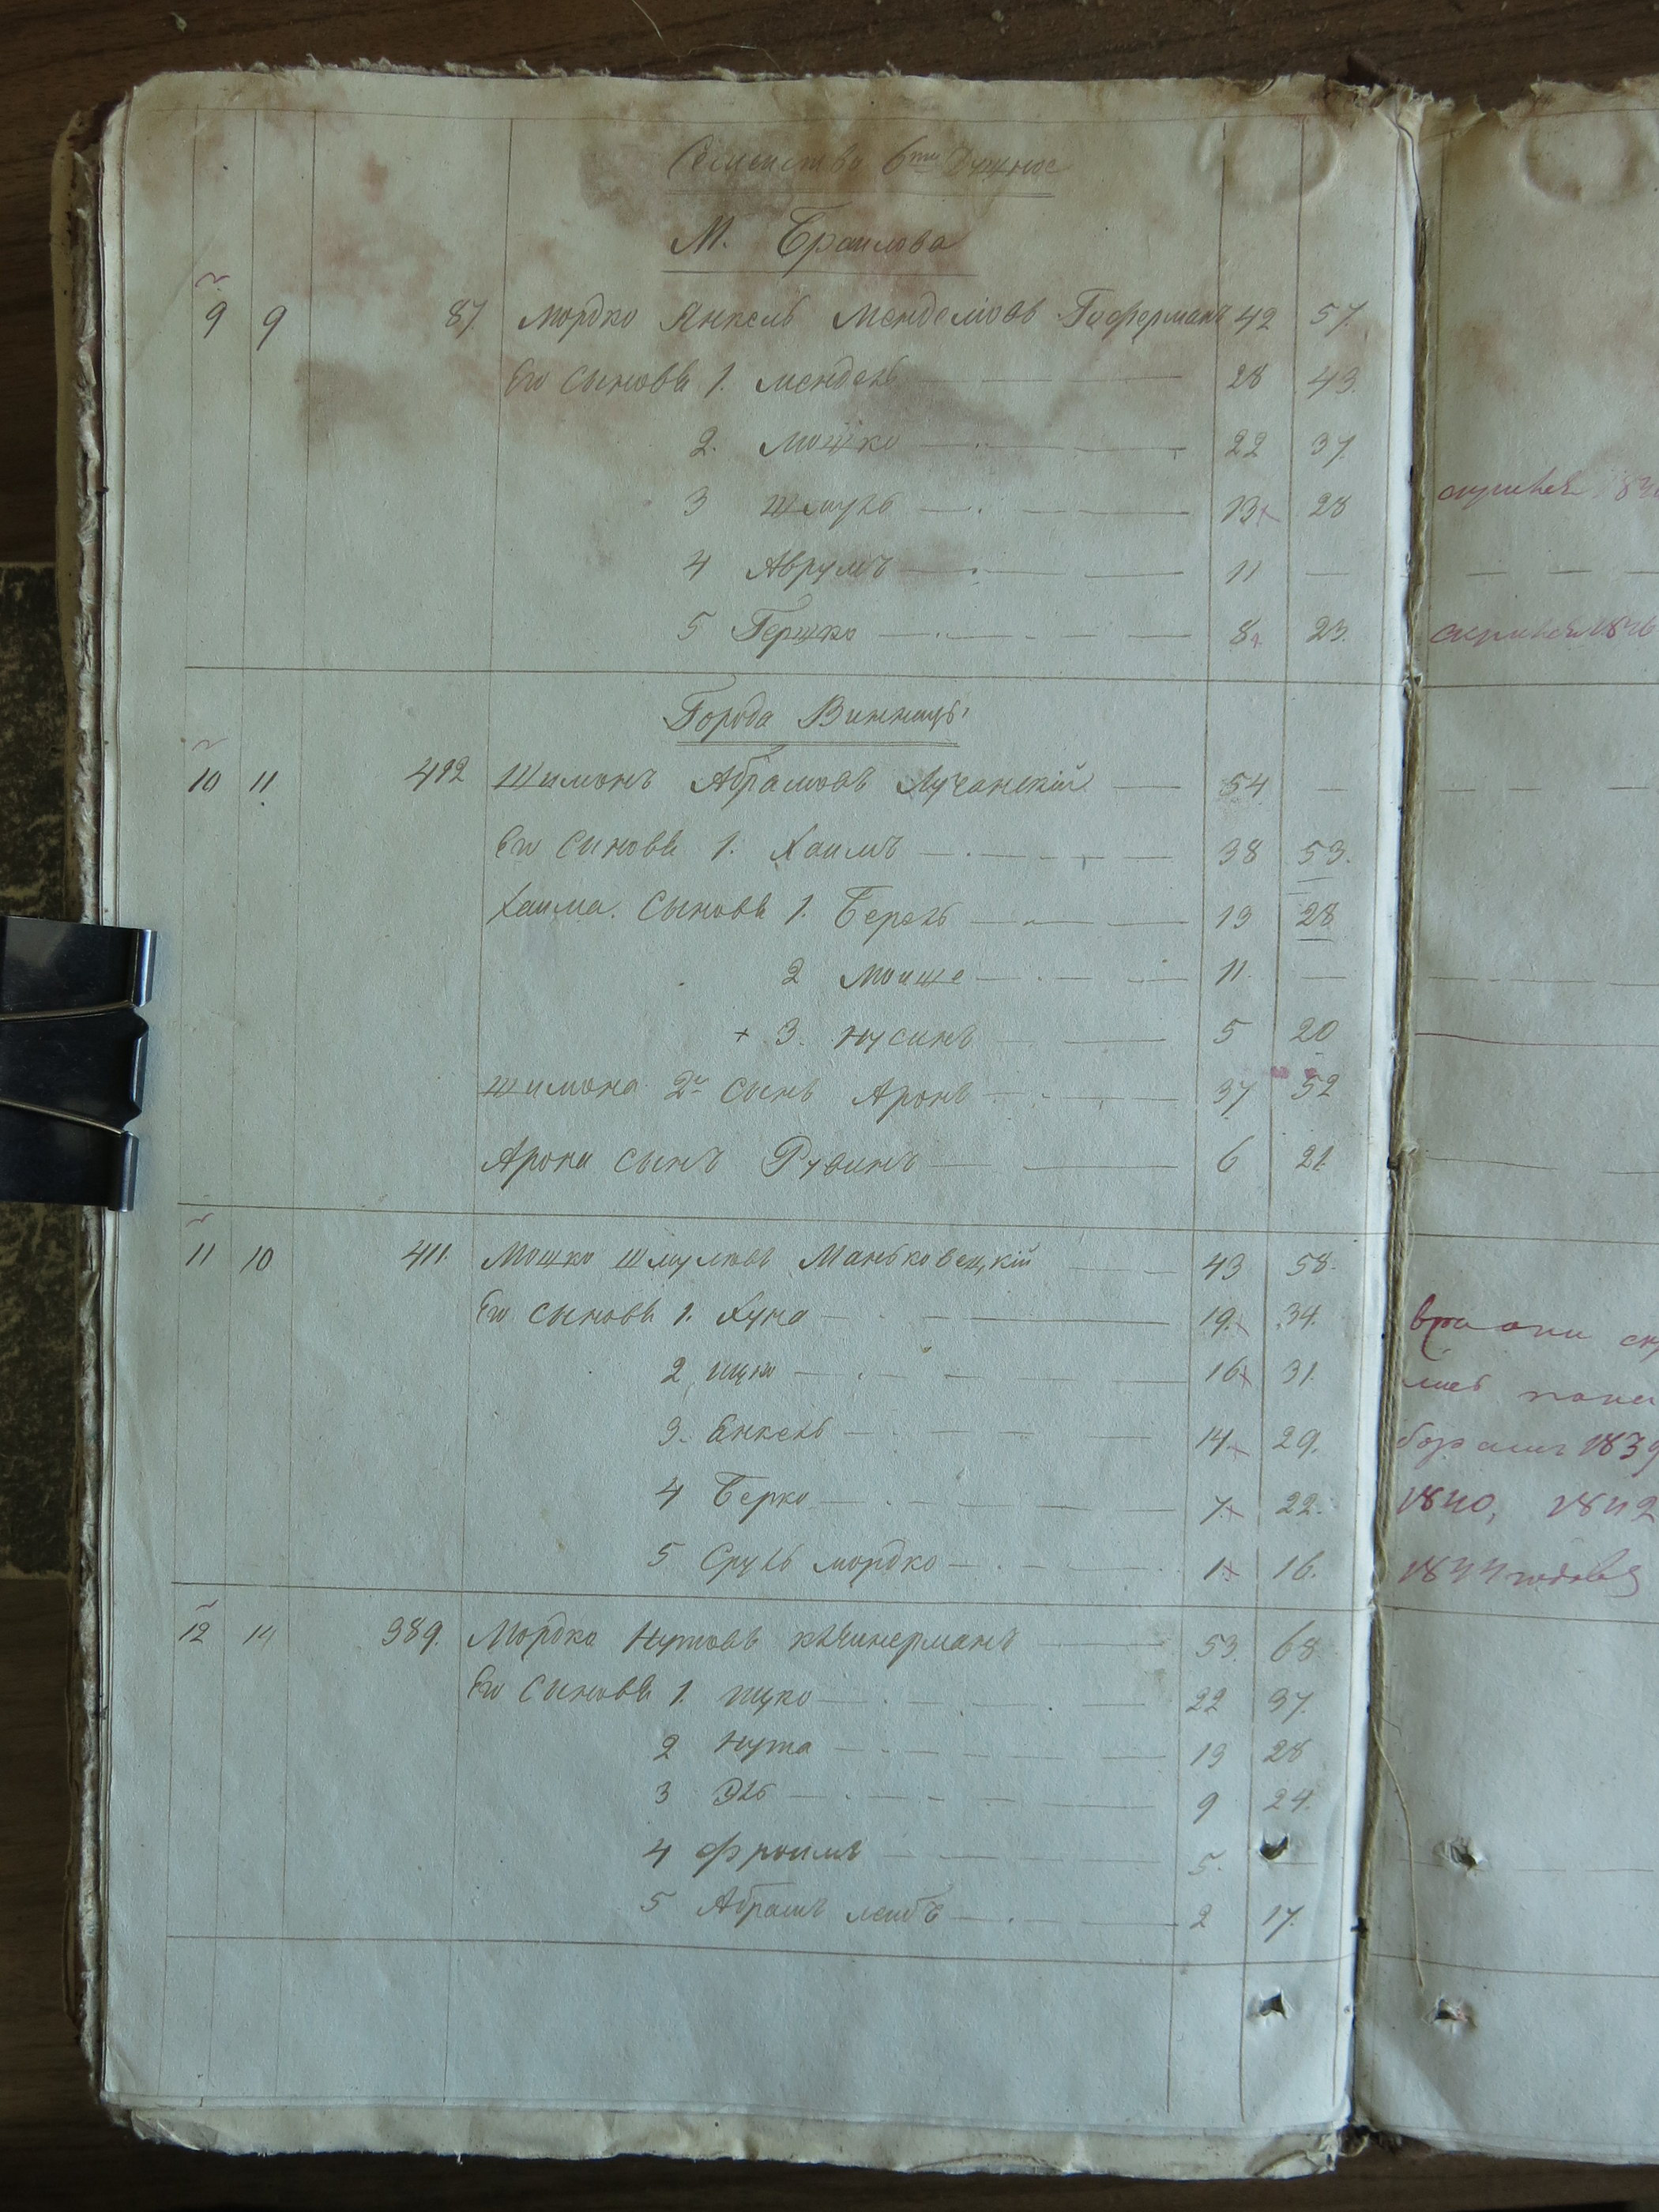 Семейства 6ти душные
М. Браилова
9 9 87. Мордко Янкель Менделіовъ Гоферманъ 42 57.
Его сыновья 1. Мендель 28 43.
2. Мошко 22 37.
3 Шмуль 13 28
4 Аврумъ — 11 —
5 Гершко 8 23.
Города Винницы
10 11 492 Шимонъ Абрамовъ Лучанскій — 54 —
Его сыновья 1. Хаимъ 38 53.
Хаима. Сыновья 1. Берель 13 28
2 Моише 11. —
+ 3. Нусинъ 5 20
Шимона 2й сынъ Аронъ 37 52
Арона сынъ Рувинъ 6 21
11 10 411. Мошко Шмулювъ Маньковецкій 43 58.
Его сыновья 1. Хуна 19. 34.
2 Ицко 16 31.
3. Енкель 14 29.
4 Берко 7. 22.
5 Сруль Мордко 1. 16.
12 14 389. Мордко Нутовъ 53. 68
Его сыновья 1. Ицко 22 37.
2 Нута 13 28
3 Эль 9 24.
4 Фроимъ 5. —
5 Абрамъ Лейбъ 2 17.
1839
1840, 1842